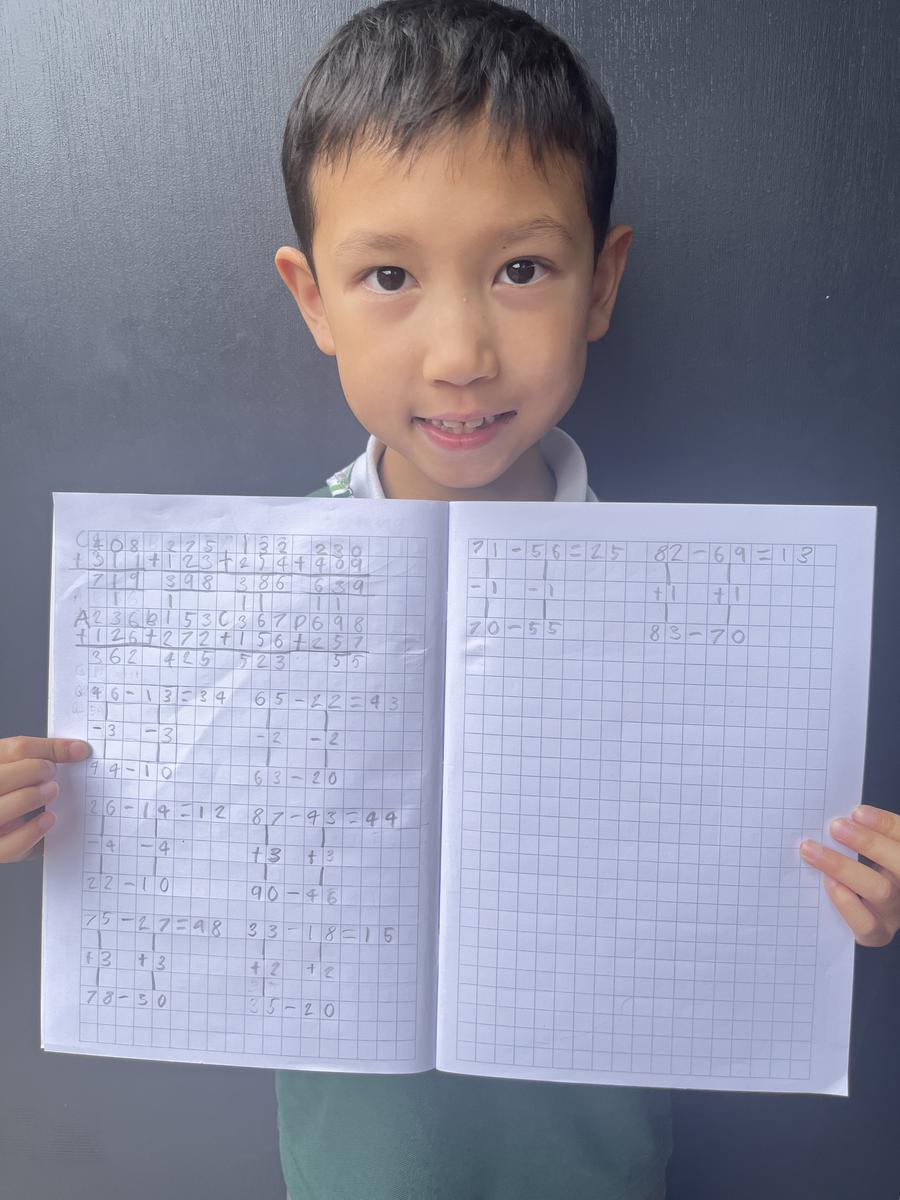 408 275 132 230
+311 +123 +254 +409
719 398 386 639
1 1 11 11
A236 B153 C367 D698
+126 +272 +156 +257
362 425 523 55
46-13=34 65-22=43
-3 -3 -2 -2
44-10 63-20
26-14=12 87-43=44
-4 -4 +3 +3
22-10 90-46
75-27=98 33-18=15
+3 +3 +2 +2
78-30 35-20
71-56=25 82-69=13
-1 -1 +1 +1
70-55 83-70